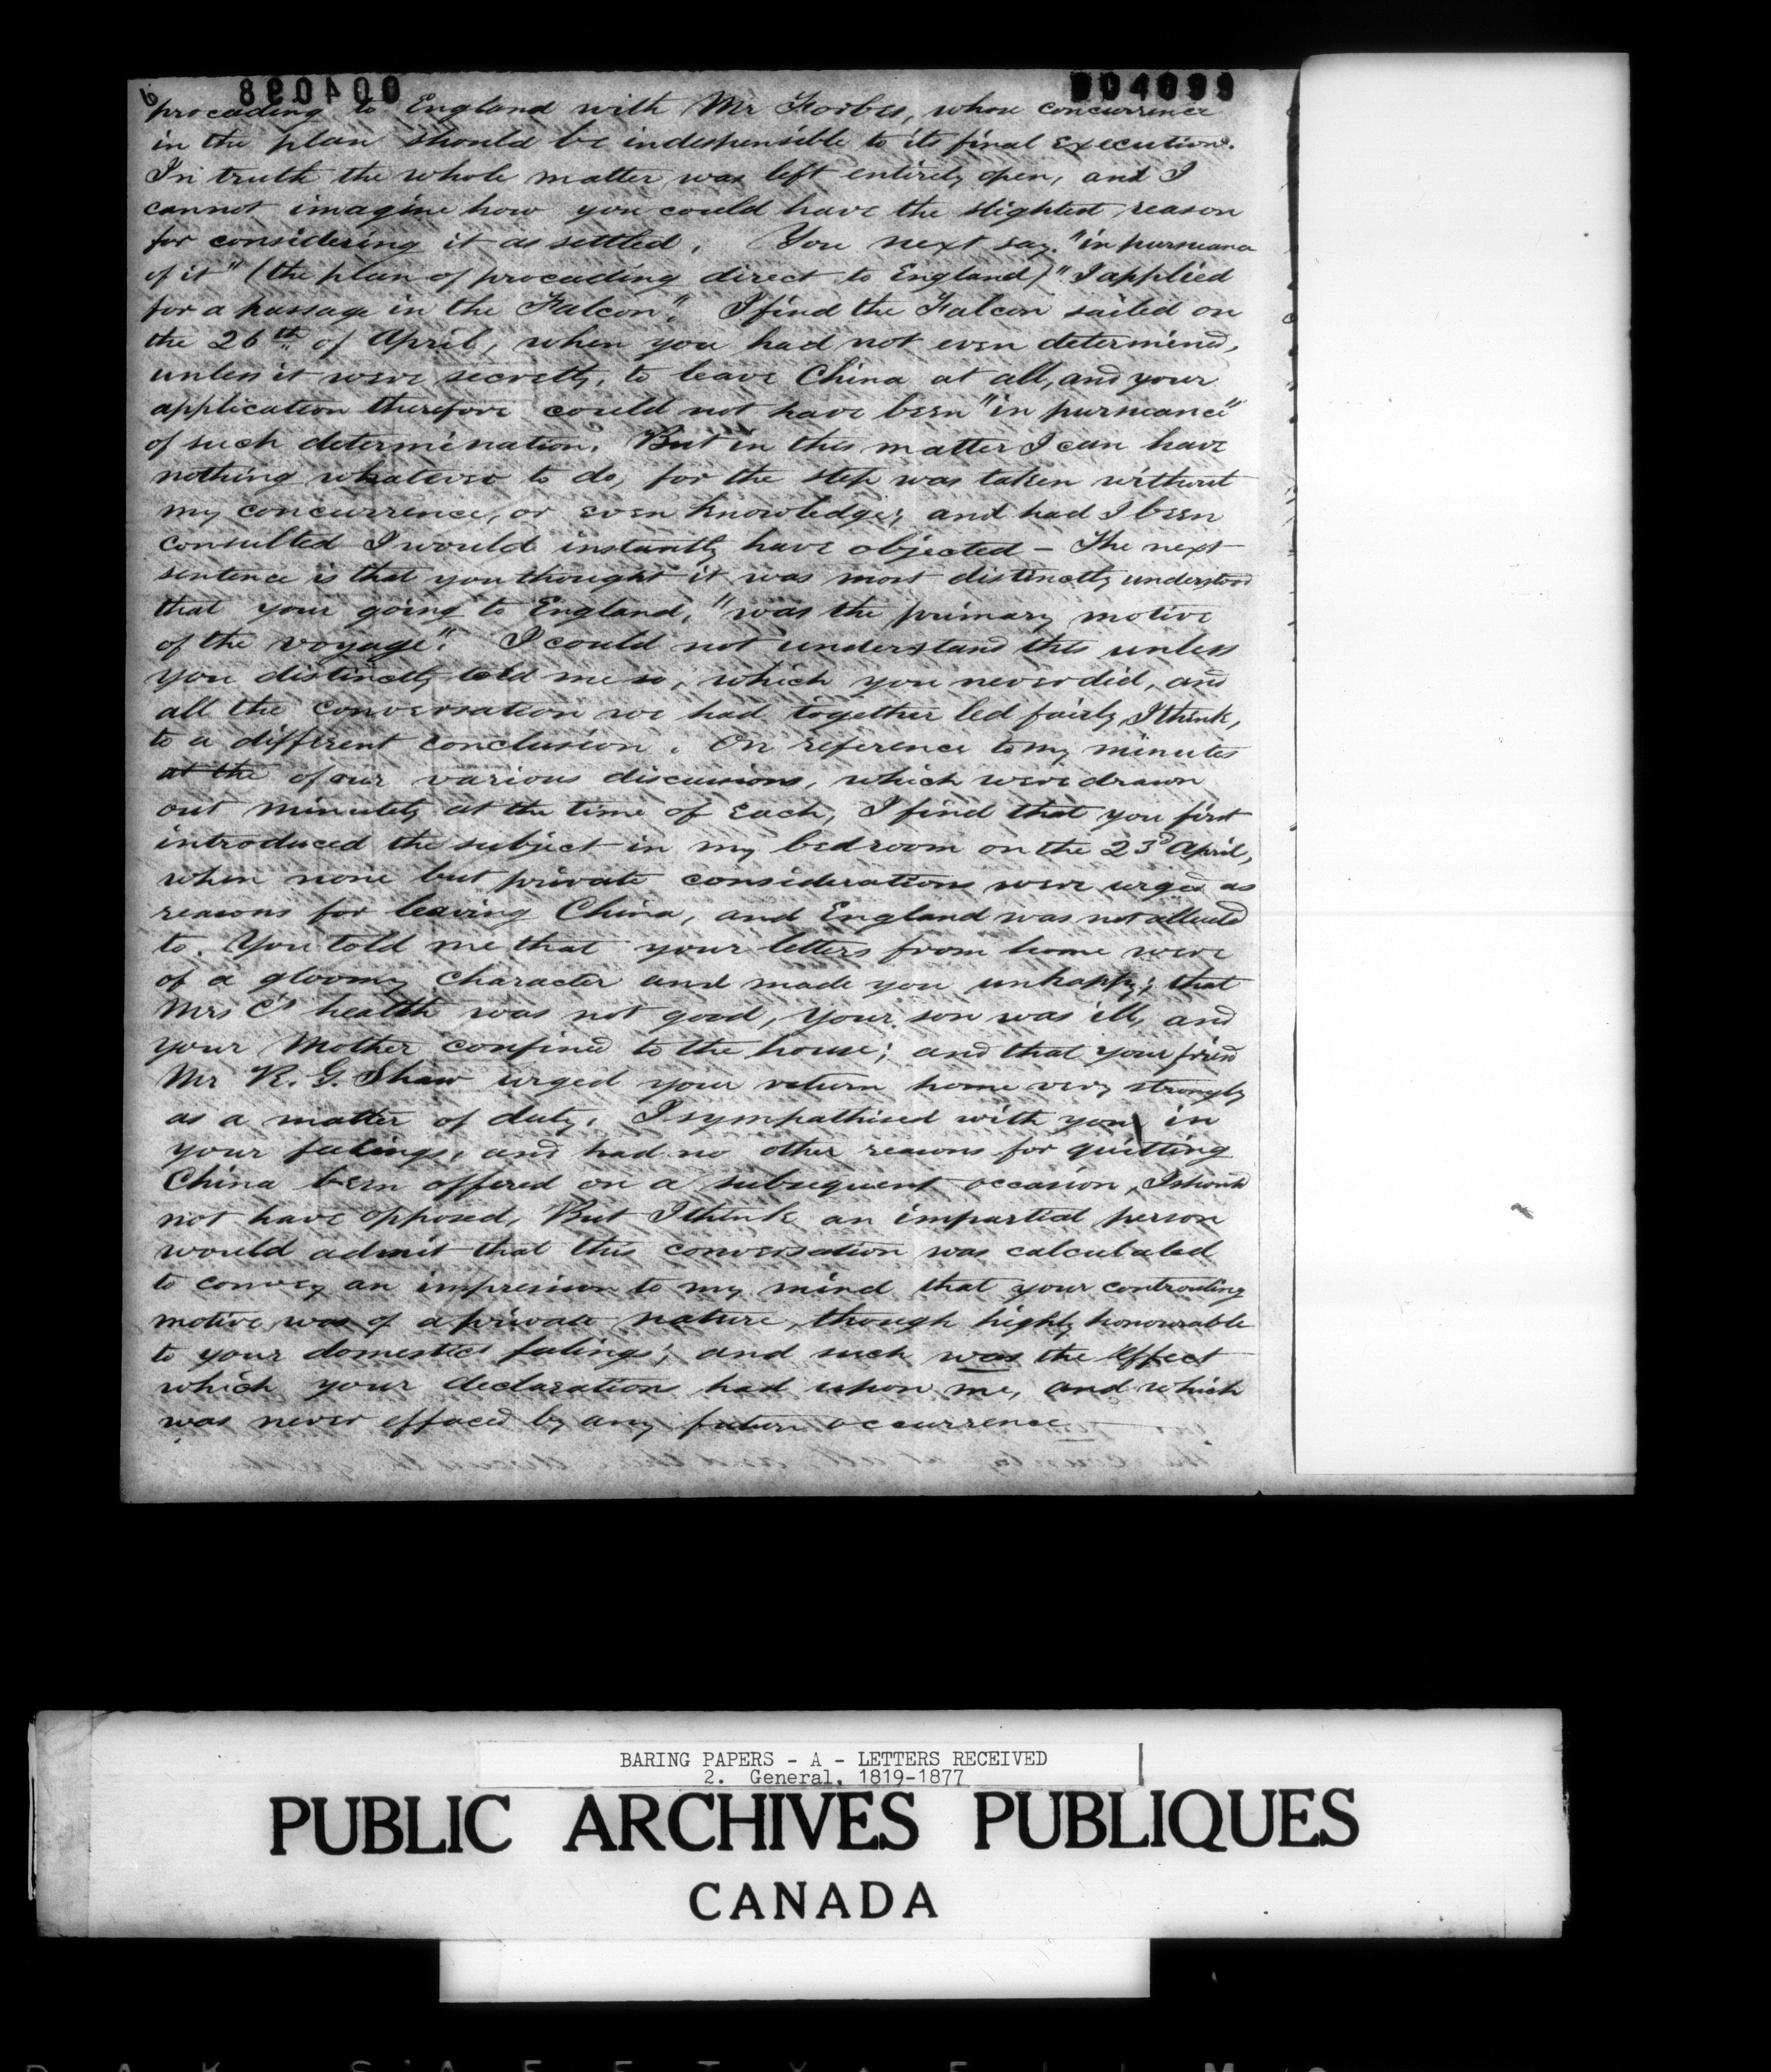 6
004098
004099
proceeding to England with Mr Forbes, whose concurrence
in the plan should be indespensible to its final execution.
In truth the whole matter was left entirely open, and I
cannot imagine how you could have the slightest reason
for considering it as settled. You next say "in pursuance
of it" (the plan of proceeding direct to England) "I applied
for a passage in the Falcon". I find the Falcon sailed on
the 26th of April, when you had not even determined,
unless it were secretly, to leave China at all, and your
application therefore could not have been "in pursuance"
of such determination. But in this matter I can have
nothing whatever to do, for the step was taken without
my concurrence, or even knowledge; and had I been
consulted I would instantly have objected – The next
sentence is that you thought it was most distinctly understood
that your going to England, "was the primary motive
of the voyage". I could not understand this unless
you distinctly told me so, which you never did, and
all the conversation we had together led fairly, I think,
to a different conclusion. On reference to my minutes
at the of our various discussions, which were drawn
out minutely at the time of each, I find that you first
introduced the subject in my bedroom on the 23d April,
when none but private considerations were urged as
reasons for leaving China, and England was not alluded
to. You told me that your letters from home were
of a gloomy character and made you unhappy; that
Mrs C's health was not good, your son was ill, and
your Mother confined to the house; and that your friend
Mr R. G. Shaw urged your return home very strongly
as a matter of duty. I sympathised with you in
your feelings, and had no other reasons for quitting
China been offered on a subsequent occasion, I should
not have opposed. But I think an impartial person
would admit that this conversation was calculated
to convey an impression to my mind that your controuling
motive was of a private nature, though highly honourable
to your domestic feelings; and such was the effect
which your declaration had upon me, and which
was never effaced by any future occurrence
BARING PAPERS - A - LETTERS RECEIVED
2. General, 1819-1877
PUBLIC ARCHIVES PUBLIQUES
CANADA